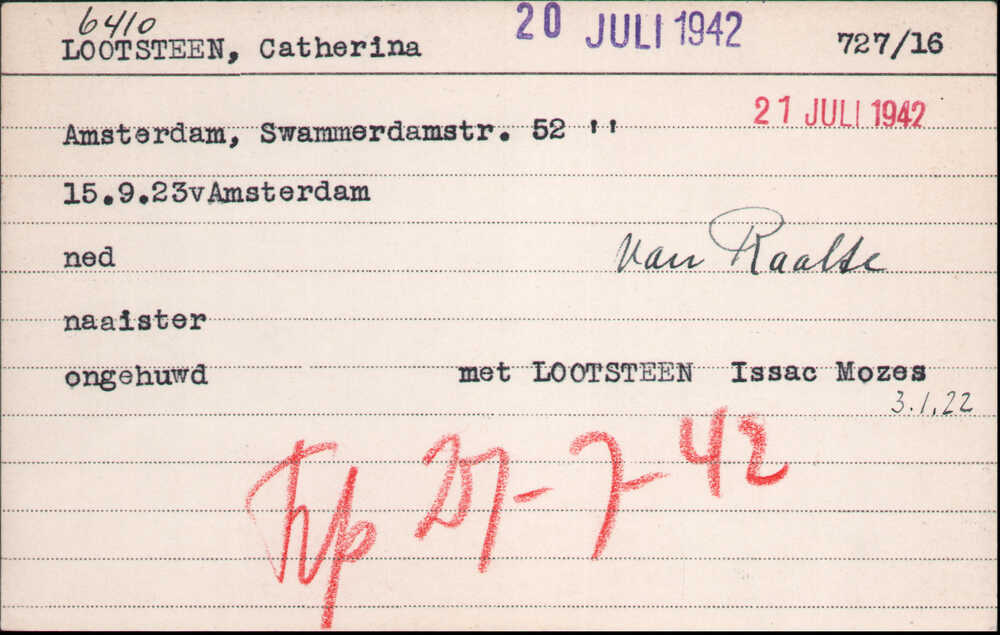 6410
LOOTSTEEN, Catherina 20 JULI 1942 727/16
Amsterdam, Swammerdamstr. 52 '' 21 JULI 1942
15.9.23vAmsterdam
ned van Raalte
naaister
ongehuwd met LOOTSTEEN Issac Mozes
3.1.22
Trp 21-7-42